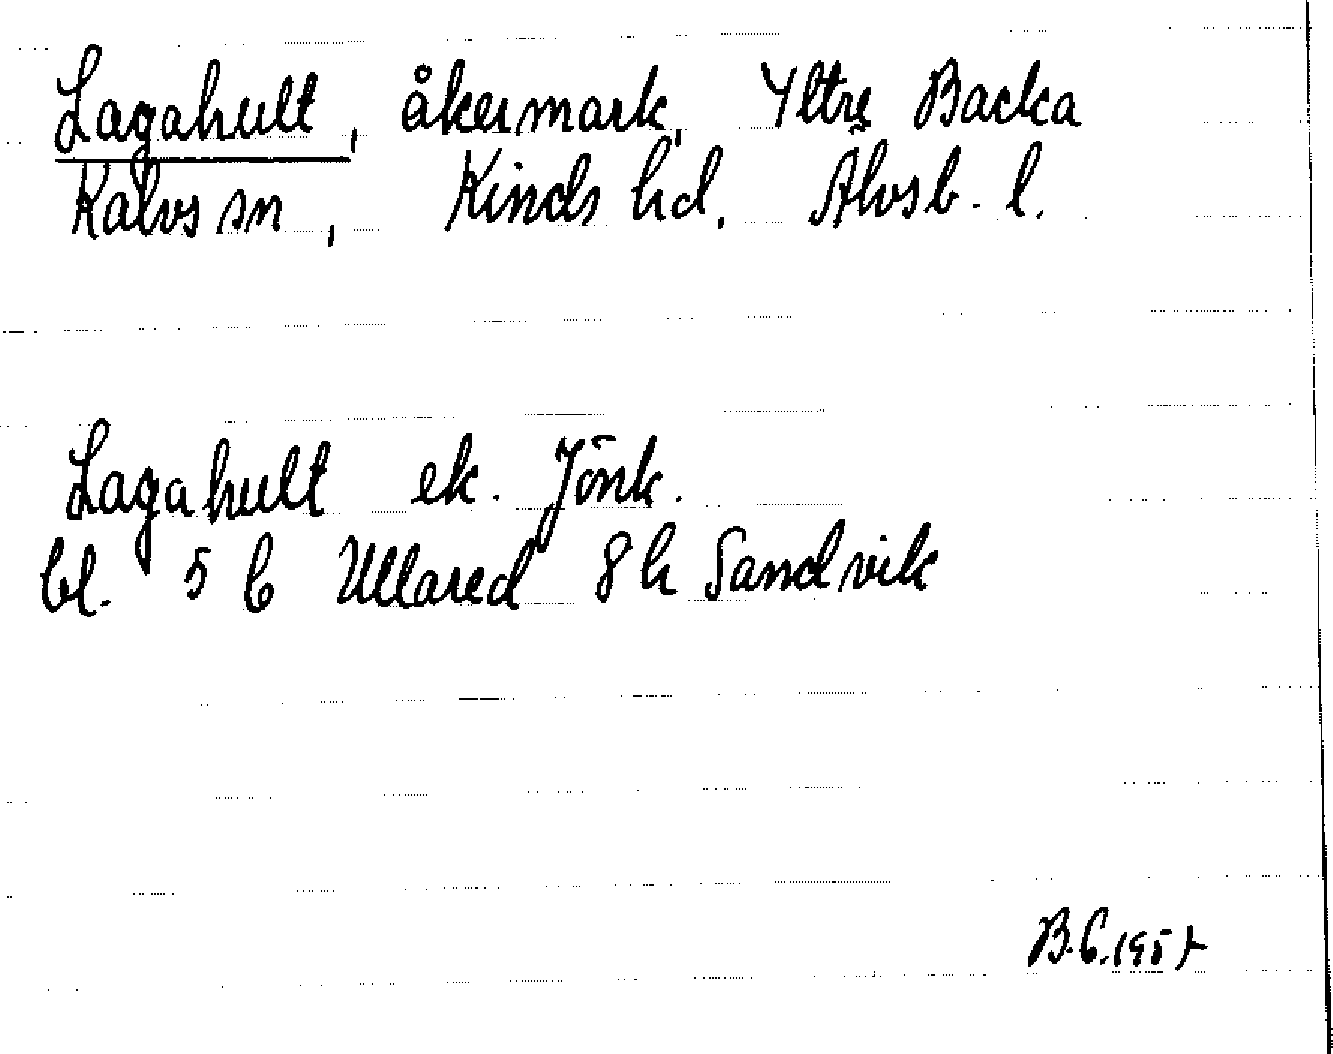 Lagahult, åkermark, Yttre Backa
Kalvs sn, Kinds hd. Älvsb. l.
Lagahult ek. Jönk.
bl. 5 C Ullared 8 h Sandvik
B.C. 1957